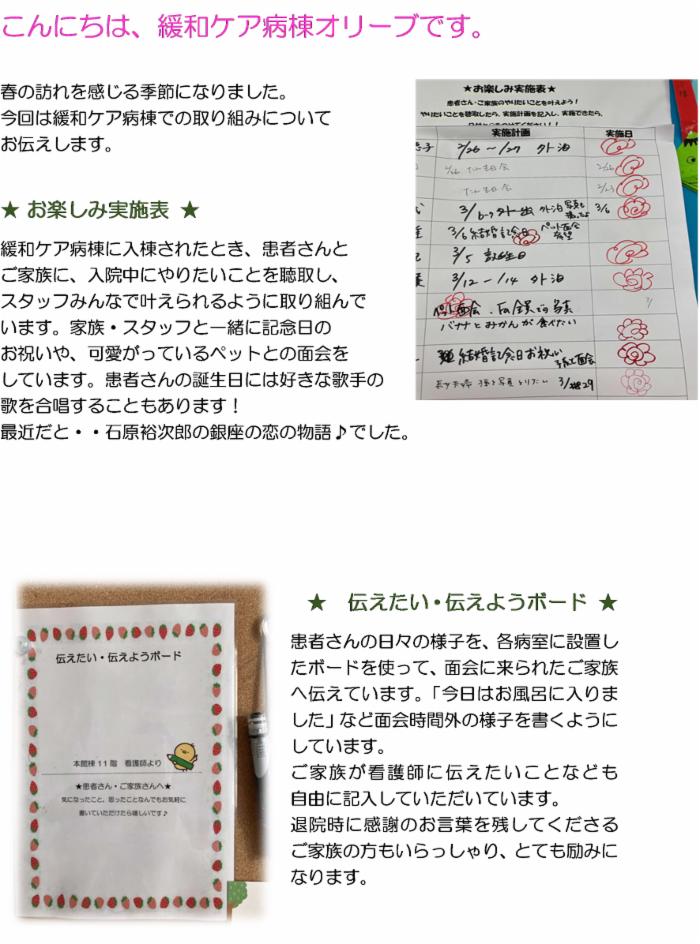 こんにちは、緩和ケア病棟オリーブです。
春の訪れを感じる季節になりました。
今回は緩和ケア病棟での取り組みについて
お伝えします。
★ お楽しみ実施表 ★
緩和ケア病棟に入棟されたとき、患者さんと
ご家族に、入院中にやりたいことを聴取し、
スタッフみんなで叶えられるように取り組んで
います。家族・スタッフと一緒に記念日の
お祝いや、可愛がっているペットとの面会を
しています。患者さんの誕生日には好きな歌手の
歌を合唱することもあります！
最近だと・・石原裕次郎の銀座の恋の物語♪でした。
★お楽しみ実施表★
患者さん・ご家族のやりたいことを叶えよう！
やりたいことを聴取したら、実施計画を記入し、実施できたら、
実施計画 実施日
2/26～1/27 外泊
3/6 結婚記念日 ペット面会
3/5 誕生日
3/12～1/14 外泊
ペット面会
バナナとみかんが食べたい
結婚記念日お祝い
★ 伝えたい・伝えようボード ★
患者さんの日々の様子を、各病室に設置し
たボードを使って、面会に来られたご家族
へ伝えています。「今日はお風呂に入りま
した」など面会時間外の様子を書くように
しています。
ご家族が看護師に伝えたいことなども
自由に記入していただいています。
退院時に感謝のお言葉を残してくださる
ご家族の方もいらっしゃり、とても励みに
なります。
伝えたい・伝えようボード
本館棟 11 階 看護師より
★患者さん・ご家族さんへ★
気になったこと、思ったことなんでもお気軽に
書いていただけたら嬉しいです♪